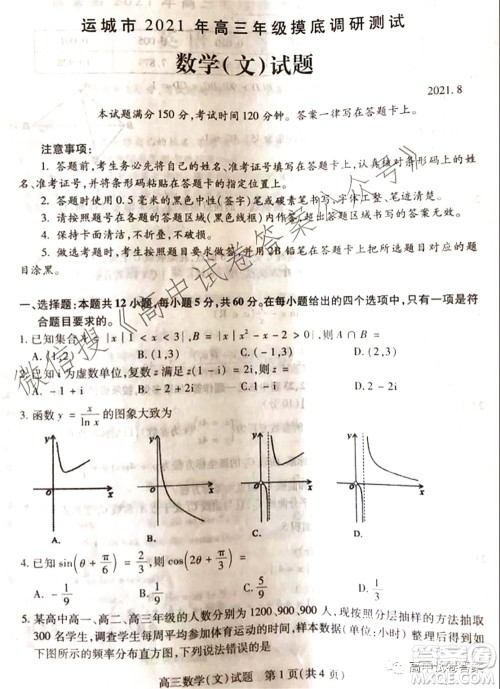 运城市2021年高三年级摸底调研测试
数学(文)试题
2021.8
本试题满分150分,考试时间120分钟。答案一律写在答题卡上。
注意事项:
1. 答题前,考生务必先将自己的姓名、准考证号填写在答题卡上,认真核对条形码上的姓
名、准考证号,并将条形码粘贴在答题卡的指定位置上。
2. 答题时使用0.5毫米的黑色中性(签字)笔或碳素笔书写,字体工整、笔迹清楚。
3. 请按照题号在各题的答题区域(黑色线框)内作答,超出答题区域书写的答案无效。
4. 保持卡面清洁,不折叠,不破损。
5. 做选考题时,考生按照题目要求做答,并用2B铅笔在答题卡上把所选题目对应的题
目涂黑。
一、选择题:本题共12小题,每小题5分,共60分。在每小题给出的四个选项中,只有一项是符
合题目要求的。
1. 已知集合A={x|1<x<3},B={x||x|<2},则A∩B=
A. (1,2) B. (1,3) C. (-1,3) D. (2,3)
2. 已知i为虚数单位,复数z满足z(1-i)=2i,则z=
A. -1+i B. -2+2i C. 1-i D. 2-2i
3. 函数y=x/ln x的图象大致为
y x y x y x y x
A. B. C. D.
4. 已知sin(θ+π/6)=2/3,则cos(2θ+π/3)=
A. -1/9 B. 1/9 C. 5/9 D. 1/3
5. 某高中高一、高二、高三年级的人数分别为1200、900、900人,现按照分层抽样的方法抽取
300名学生,调查学生每周平均参加体育运动的时间,样本数据(单位:小时)整理后得到如
下图所示的频率分布直方图,下列说法错误的是
高三数学(文)试题 第1页(共4页)
微信搜《高中试卷答案公众号》
高中试卷答案